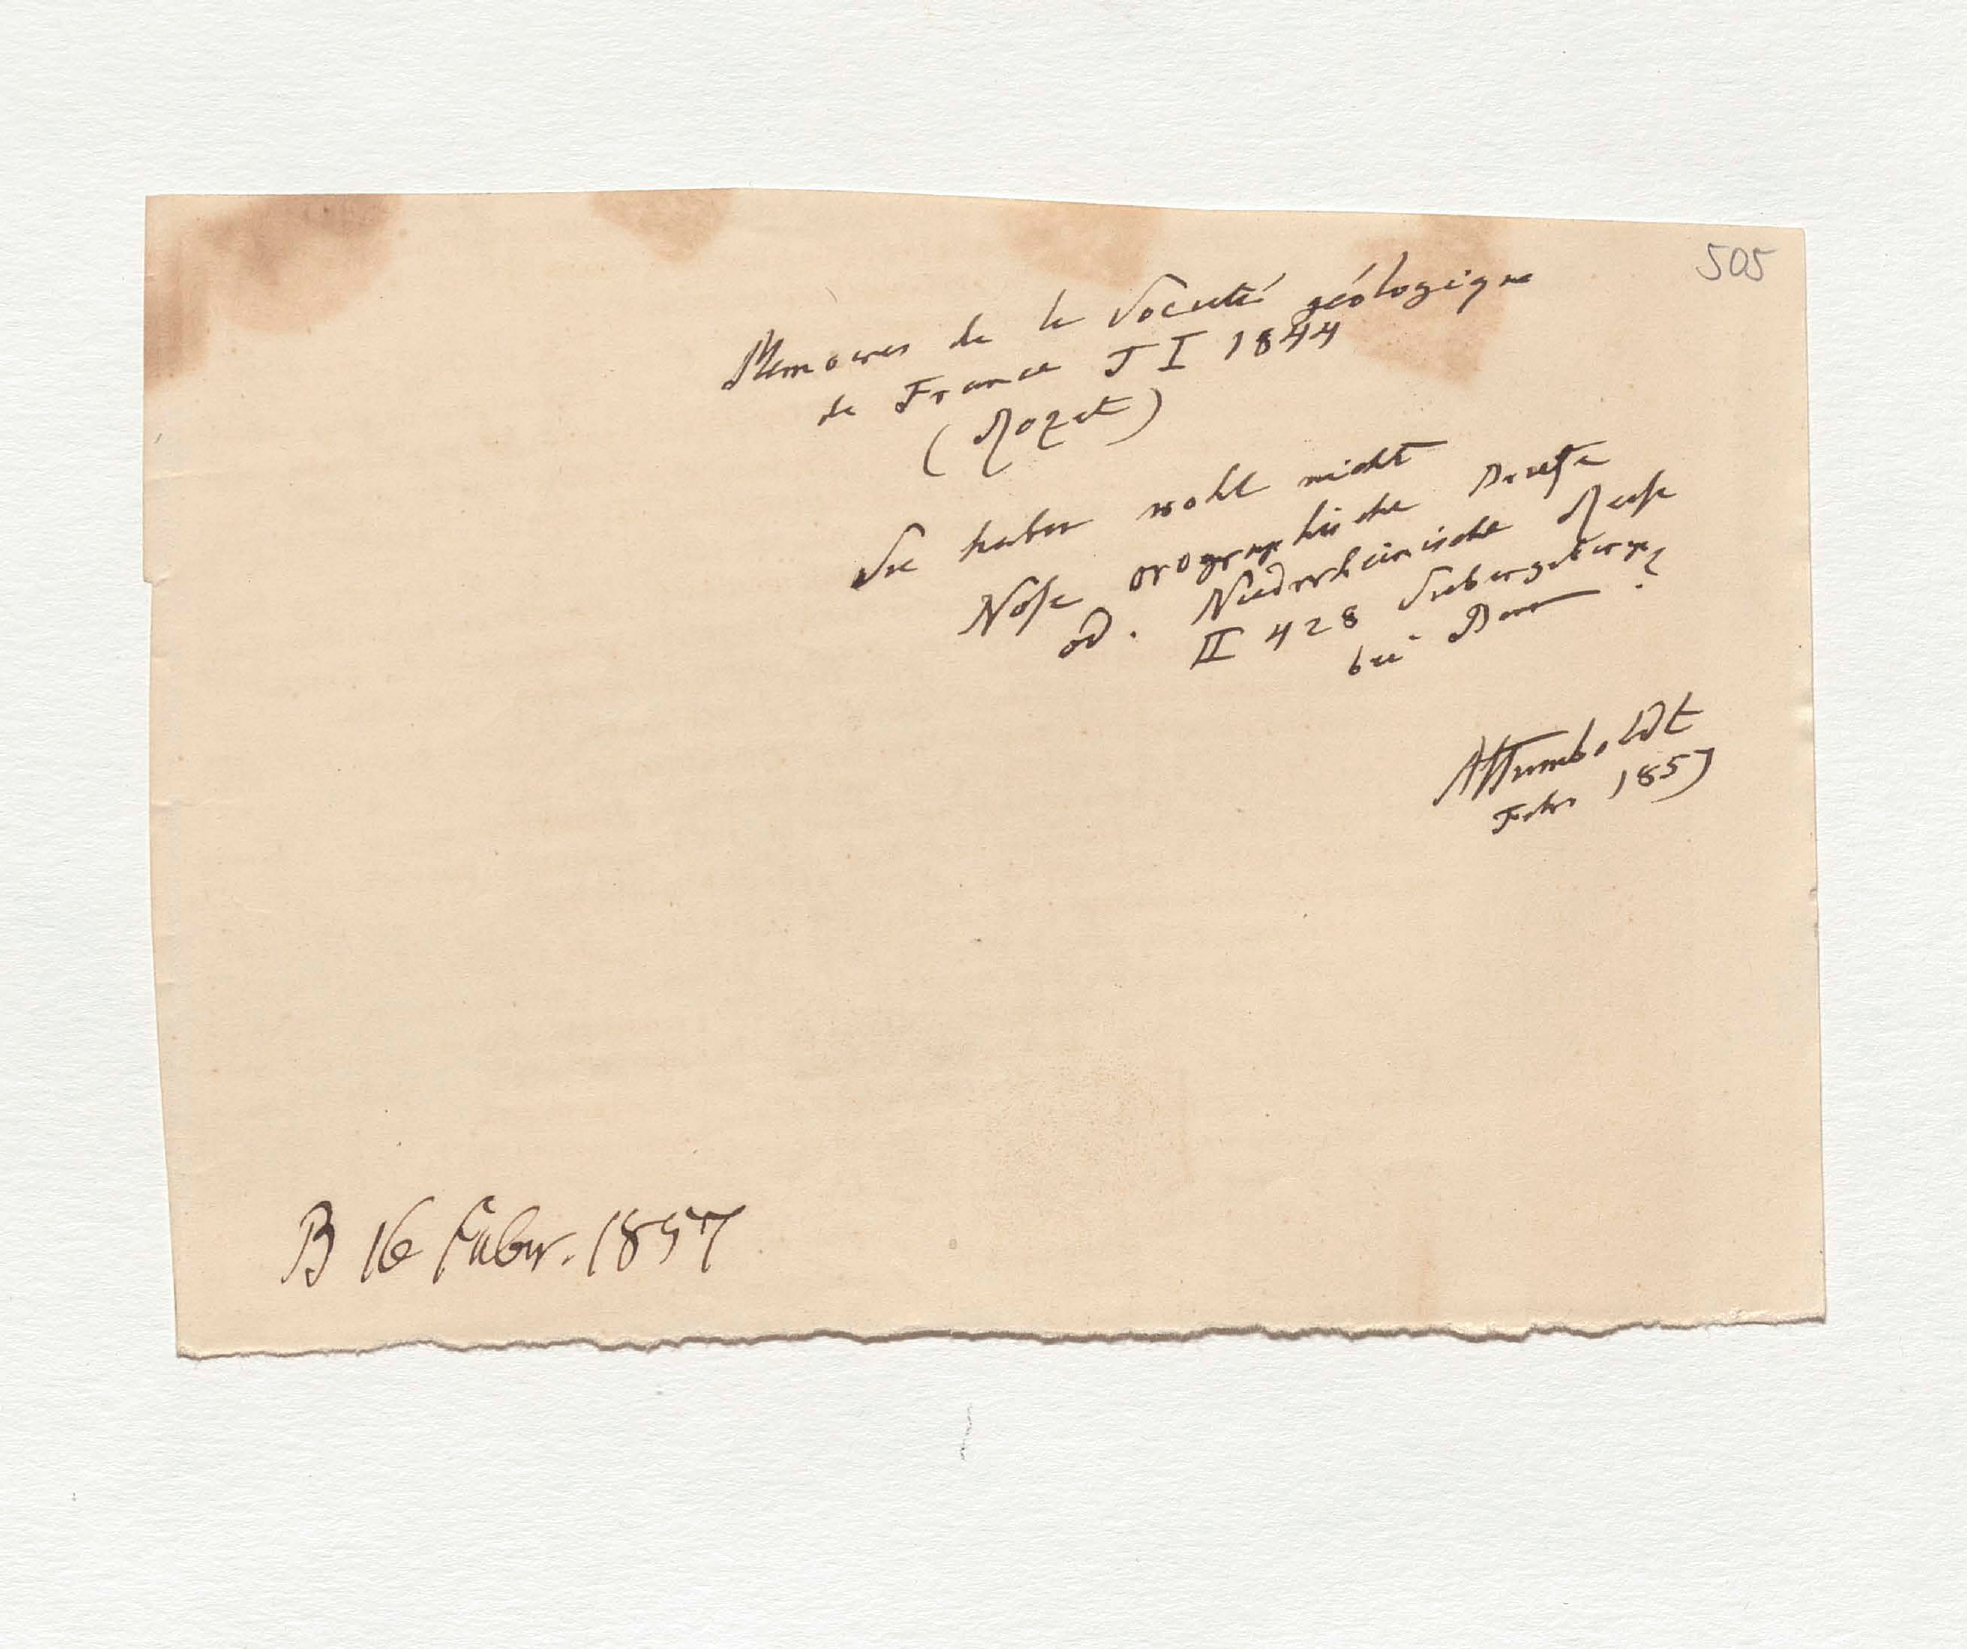 505
Memoires de la Société géologique
de France T I 1844
(Rozet)
Sie haben wohl nicht
Nose orographische Briefe
od. Niederrheinische Reise
II 428 Siebengebirge
bei Bonn?
AHumboldt
Febr 1857
B 16 Febr. 1857